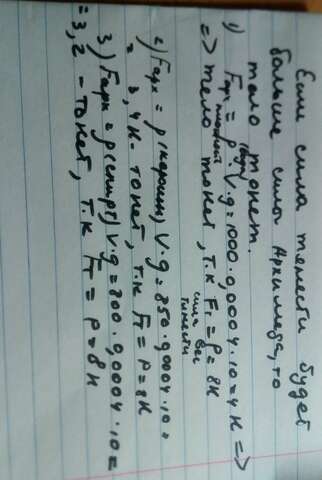 Если сила тяжести будет
больше силы Архимеда, то
тело тонет.
1) Fарх = ρ(воды) · V · g = 1000 · 0,0004 · 10 = 4 Н =>
=> тело тонет, т.к Fт = P = 8Н
сила тяжести
вес
2) Fарх = ρ(керосин) V · g = 850 · 0,0004 · 10 =
= 3,4Н - тонет, т.к Fт = P = 8Н
3) Fарх = ρ(спирт) V · g = 800 · 0,0004 · 10 =
= 3,2 - тонет, т.к Fт = P = 8Н